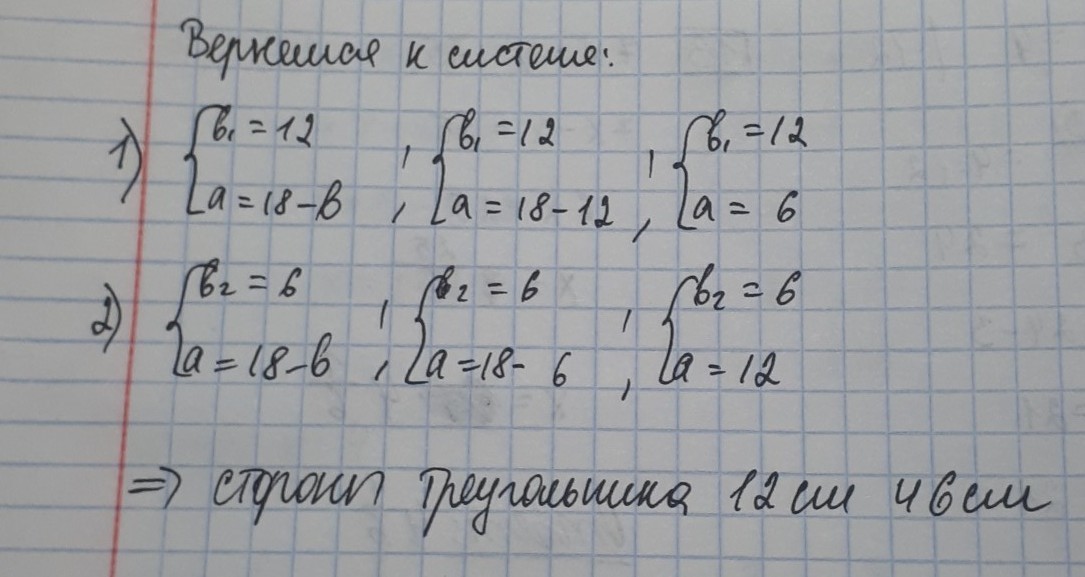 Вернемся к системе:
1) { b₁ = 12 , { b₁ = 12 , { b₁ = 12
{ a = 18 - b , { a = 18 - 12 , { a = 6
2) { b₂ = 6 , { b₂ = 6 , { b₂ = 6
{ a = 18 - b , { a = 18 - 6 , { a = 12
=> стороны треугольника 12 см и 6 см